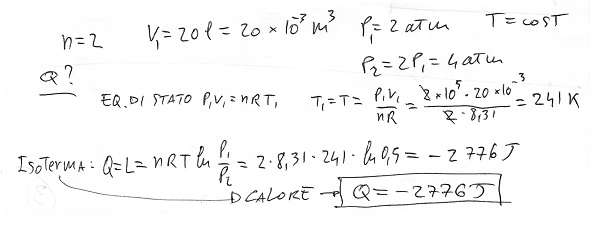 n=2 V₁=20 l=20×10⁻³ m³ P₁=2 atm T=cost
P₂=2P₁=4 atm
Q?
EQ. DI STATO P₁V₁=nRT₁ T₁=T= P₁V₁/nR = 2×10⁵·20×10⁻³/2·8,31 = 241 K
ISOTERMA: Q=L=nRT ln P₁/P₂ = 2·8,31·241·ln 0,5=-2776 J
CALORE → Q=-2776 J